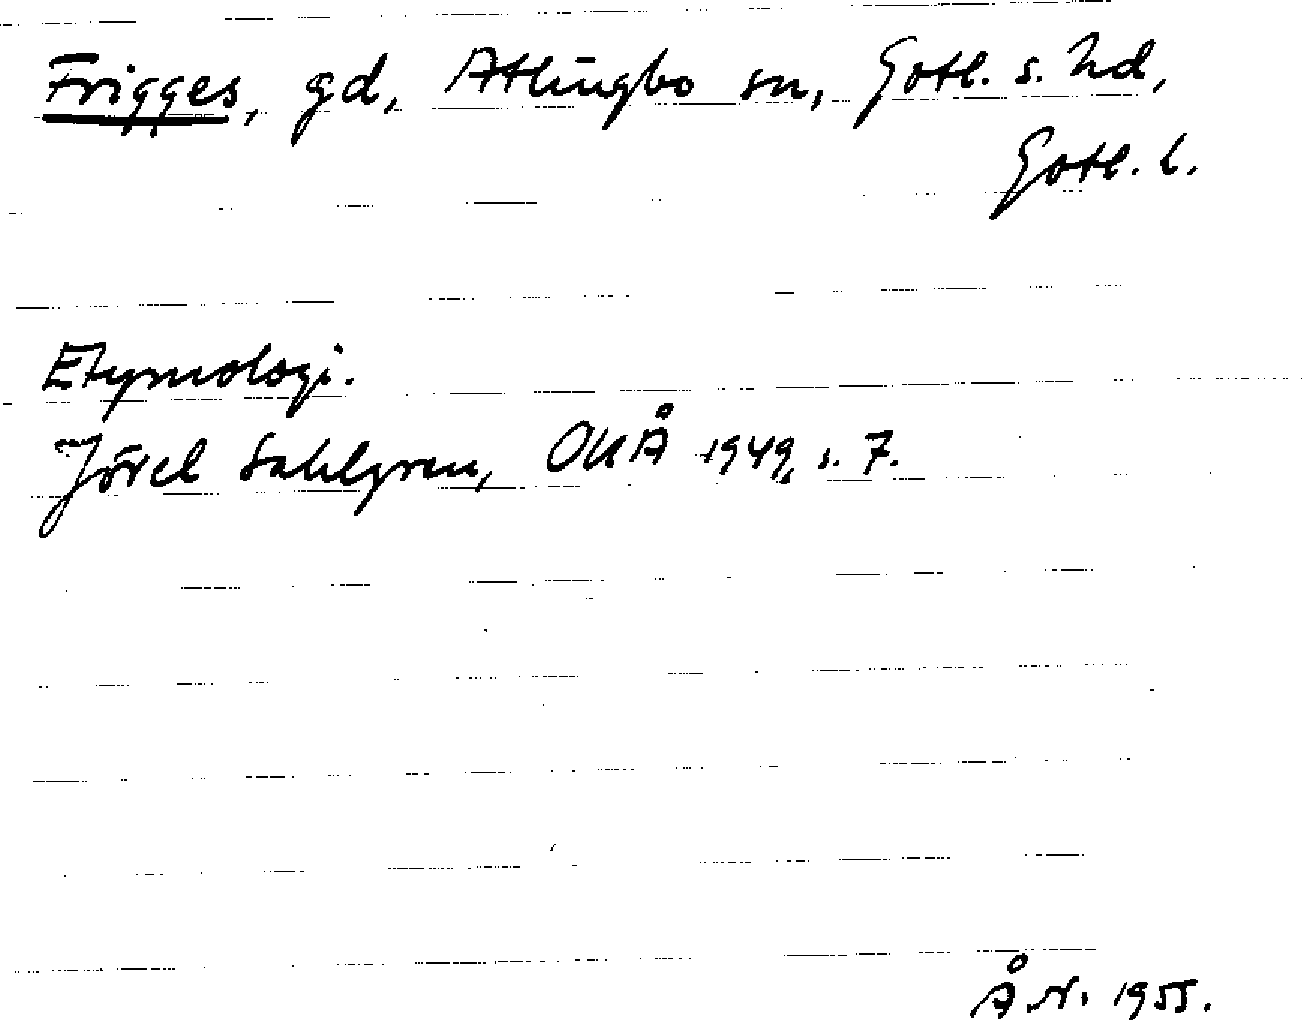 Frigges, gd, Atlingbo sn, Gotl. s. hd,
Gotl. l.
Etymologi.
Jöran Sahlgren, OUÅ 1949, s. 7.
Å. N. 1955.